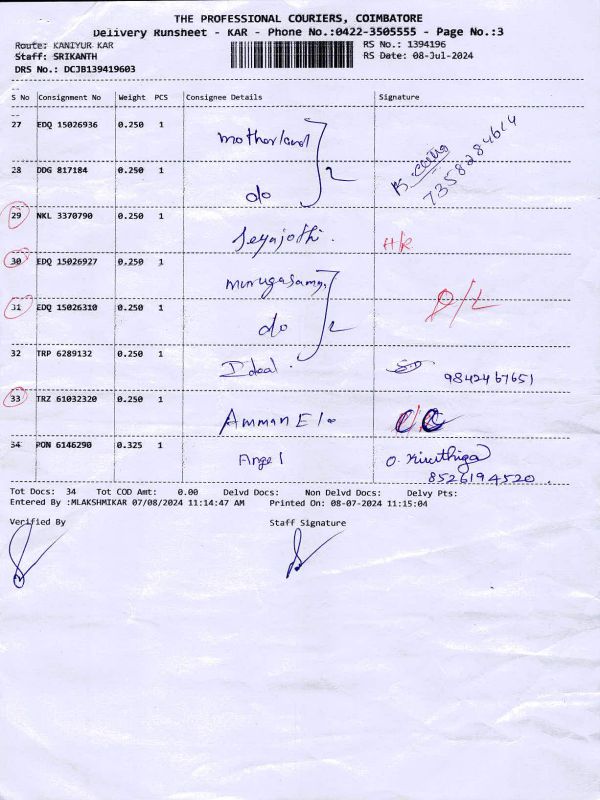 THE PROFESSIONAL COURIERS, COIMBATORE
Delivery Runsheet - KAR - Phone No.:0422-3505555 - Page No.:3
Route: KANIYUR KAR RS No.: 1394196
Staff: SRIKANTH RS Date: 08-Jul-2024
DRS No.: DCJB139419603
S No Consignment No Weight PCS Consignee Details Signature
27 EDQ 15026936 0.250 1 Motherland 7358284614
28 DDG 817184 0.250 1 do 2
29 NKL 3370790 0.250 1 Jeyajothi. H/R
30 EDQ 15026927 0.250 1 Murugasamy
31 EDQ 15026310 0.250 1 do 2 D/L
32 TRP 6289132 0.250 1 Ideal. 9842467651
33 TRZ 61032320 0.250 1 Amman Ele
34 PON 6146290 0.325 1 Angel O. Kiruthiga
8526194520.
Tot Docs: 34 Tot COD Amt: 0.00 Delvd Docs: Non Delvd Docs: Delvy Pts:
Entered By :MLAKSHMIKAR 07/08/2024 11:14:47 AM Printed On: 08-07-2024 11:15:04
Verified By Staff Signature